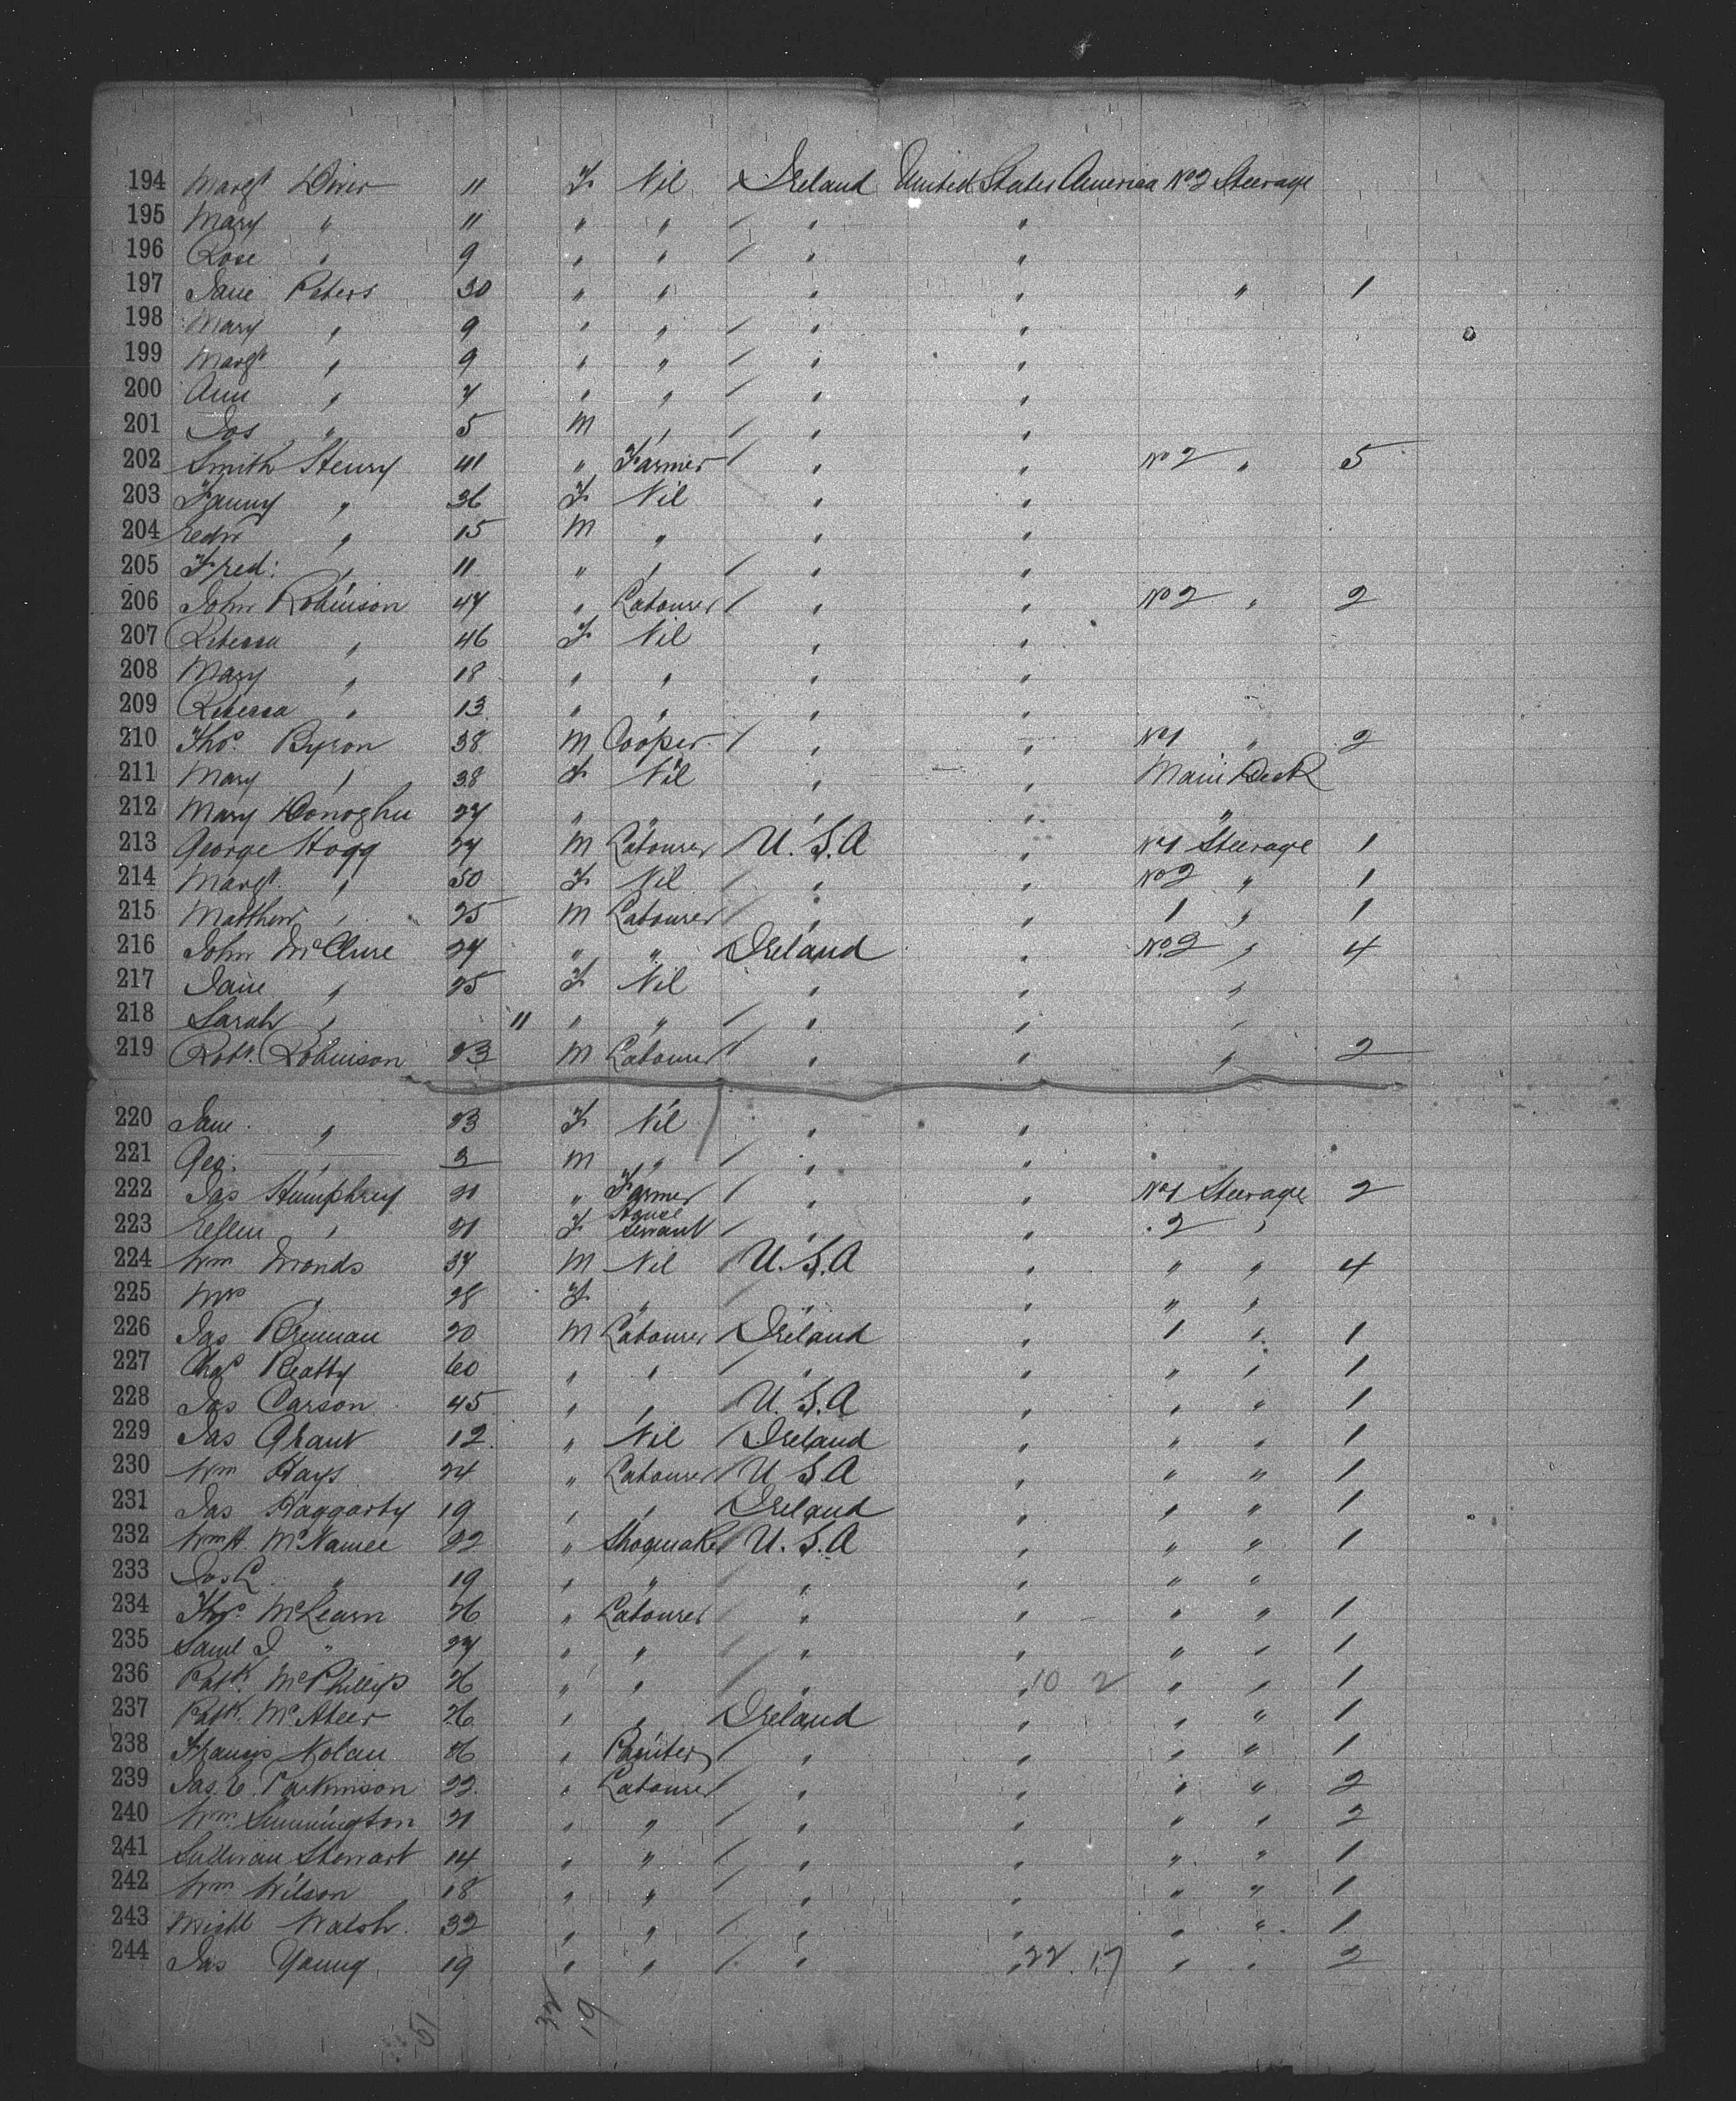 194 Margt Diver 11 F Nil Ireland United States America No 2 Steerage
195 Mary " 11 " " " "
196 Rose " 9 " " " "
197 Jane Peters 30 " " " " " 1
198 Mary " 9 " " " "
199 Margt " 9 " " " "
200 Ann " 7 " " " "
201 Jas " 5 M " " "
202 Smith Henry 41 " Farmer " " No 2 " 5
203 Fanny " 36 F Nil " "
204 Edw " 15 M " " "
205 Fred: " 11 " " " "
206 John Robinson 47 " Labourer " " No 2 " 2
207 Rebecca " 46 F Nil " "
208 Mary " 18 " " " "
209 Rebecca " 13 " " " "
210 Thos. Byron 38 M Cooper " " No 1 " 2
211 Mary " 38 F Nil " " Main Deck
212 Mary Donoghue 27 " " " " "
213 George Hogg 27 M Labourer U.S.A " No 1 Steerage 1
214 Margt " 50 F Nil " " No 2 " 1
215 Matthew " 25 M Labourer " " 1 " 1
216 John McClure 27 " " Ireland " No. 2 " 4
217 Jane " 25 F Nil " " "
218 Sarah " 11 " " " " "
219 Robt. Robinson 23 M Labourer " " " 2
220 Jane " 23 F Nil " "
221 Geo. " 3 M " " "
222 Jas Humphrey 21 " Farmer " " No 1 Steerage 2
223 Ellen " 21 F House Servant " " 2 "
224 Wm Monds 37 M Nil U.S.A " " " 4
225 Mrs " 28 F " " " " "
226 Jas Brennan 20 M Labourer Ireland " 1 " 1
227 Chas Beatty 60 " " " " " " 1
228 Jas Carson 45 " " U.S.A " " " 1
229 Jas Grant 12 " Nil Ireland " " " 1
230 Wm Hays 24 " Labourer U.S.A " " " 1
231 Jas Haggarty 19 " " Ireland " " " 1
232 Wm H. McNamee 22 " Shoemaker U.S.A " " " 1
233 Jas L " 19 " " " " " "
234 Thos. McLearn 26 " Labourer " " " " 1
235 Saml J " 27 " " " " " " 1
236 Patk. McPhillips 26 " " " " 10 2 " " 1
237 Patk. McAteer 26 " " Ireland " " " 1
238 Francis Nolan 26 " Painter " " " " 1
239 Jas. E. Parkinson 22 " Labourer " " " " 2
240 Wm. Sinnington 21 " " " " " " 2
241 Sullivan Stewart 14 " " " " " " 1
242 Wm Wilson 18 " " " " " " 1
243 Michl Walsh 32 " " " " " " 1
244 Jas Young 19 " " " " 22 17 " " 2
32 19
19